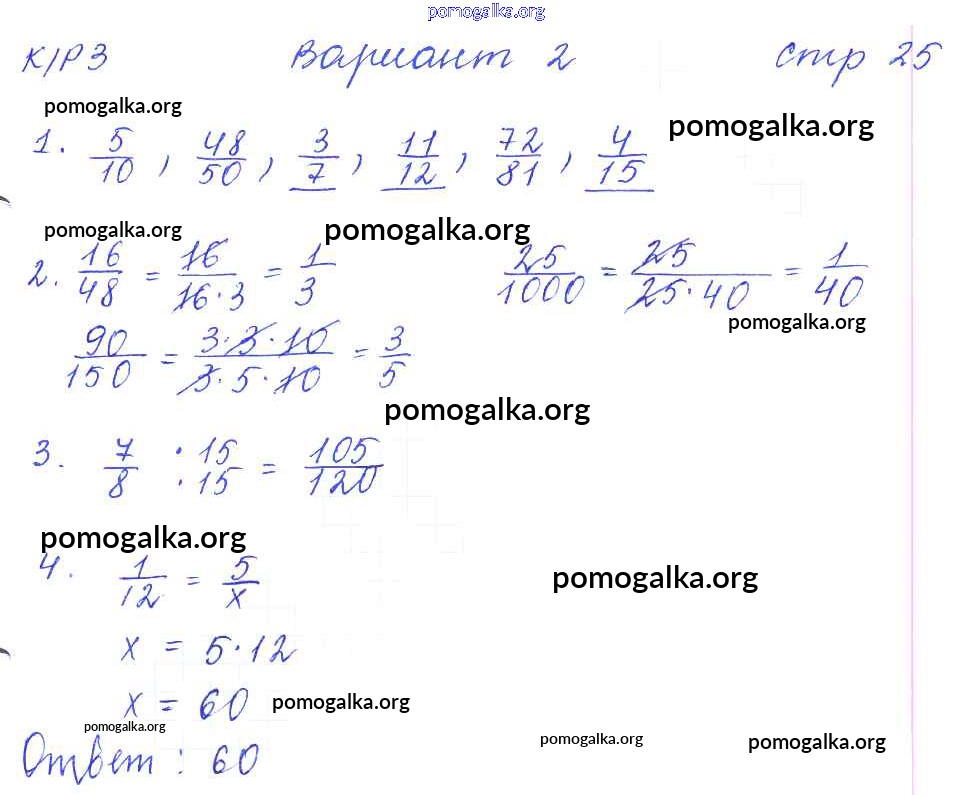 pomogalka.org
К/Р 3 Вариант 2 стр 25
pomogalka.org
pomogalka.org
1. 5/10, 48/50, 3/7, 11/12, 72/81, 4/15
pomogalka.org pomogalka.org
2. 16/48 = 16/16·3 = 1/3 25/1000 = 25/25·40 = 1/40
pomogalka.org
90/150 = 3·3·10/3·5·10 = 3/5
pomogalka.org
3. 7/8 ·15/·15 = 105/120
pomogalka.org
4. 1/12 = 5/x
pomogalka.org
x = 5·12
x = 60 pomogalka.org
pomogalka.org
pomogalka.org pomogalka.org
Ответ: 60